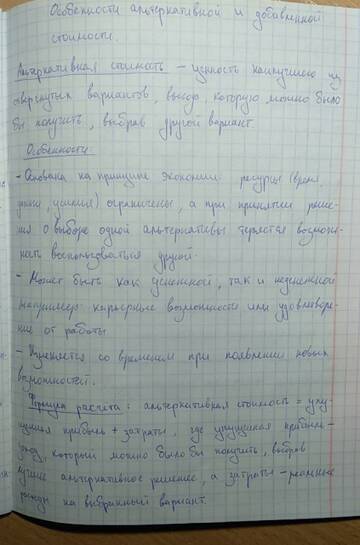 Особенности альтернативной и добавленной
стоимости.
Альтернативная стоимость – ценность наилучшего из
отвергнутых вариантов, выгода, которую можно было
бы получить, выбрав другой вариант.
Особенности
- Основана на принципе экономии ресурсы (время,
усилия) ограничены, а при принятии реше-
ния о выборе одной альтернативы теряется возмож-
ность воспользоваться другой.
- Может быть как денежной, так и неденежной
например карьерные возможности или удовлетворе-
ние от работы
- Изменяется со временем при появлении новых
возможностей.
Формула расчета: альтернативная стоимость = упу-
щенная прибыль + затраты, где упущенная прибыль-
доход, который можно было бы получить, выбрав
лучшее альтернативное решение, а затраты – реальные
расходы на выбранный вариант.